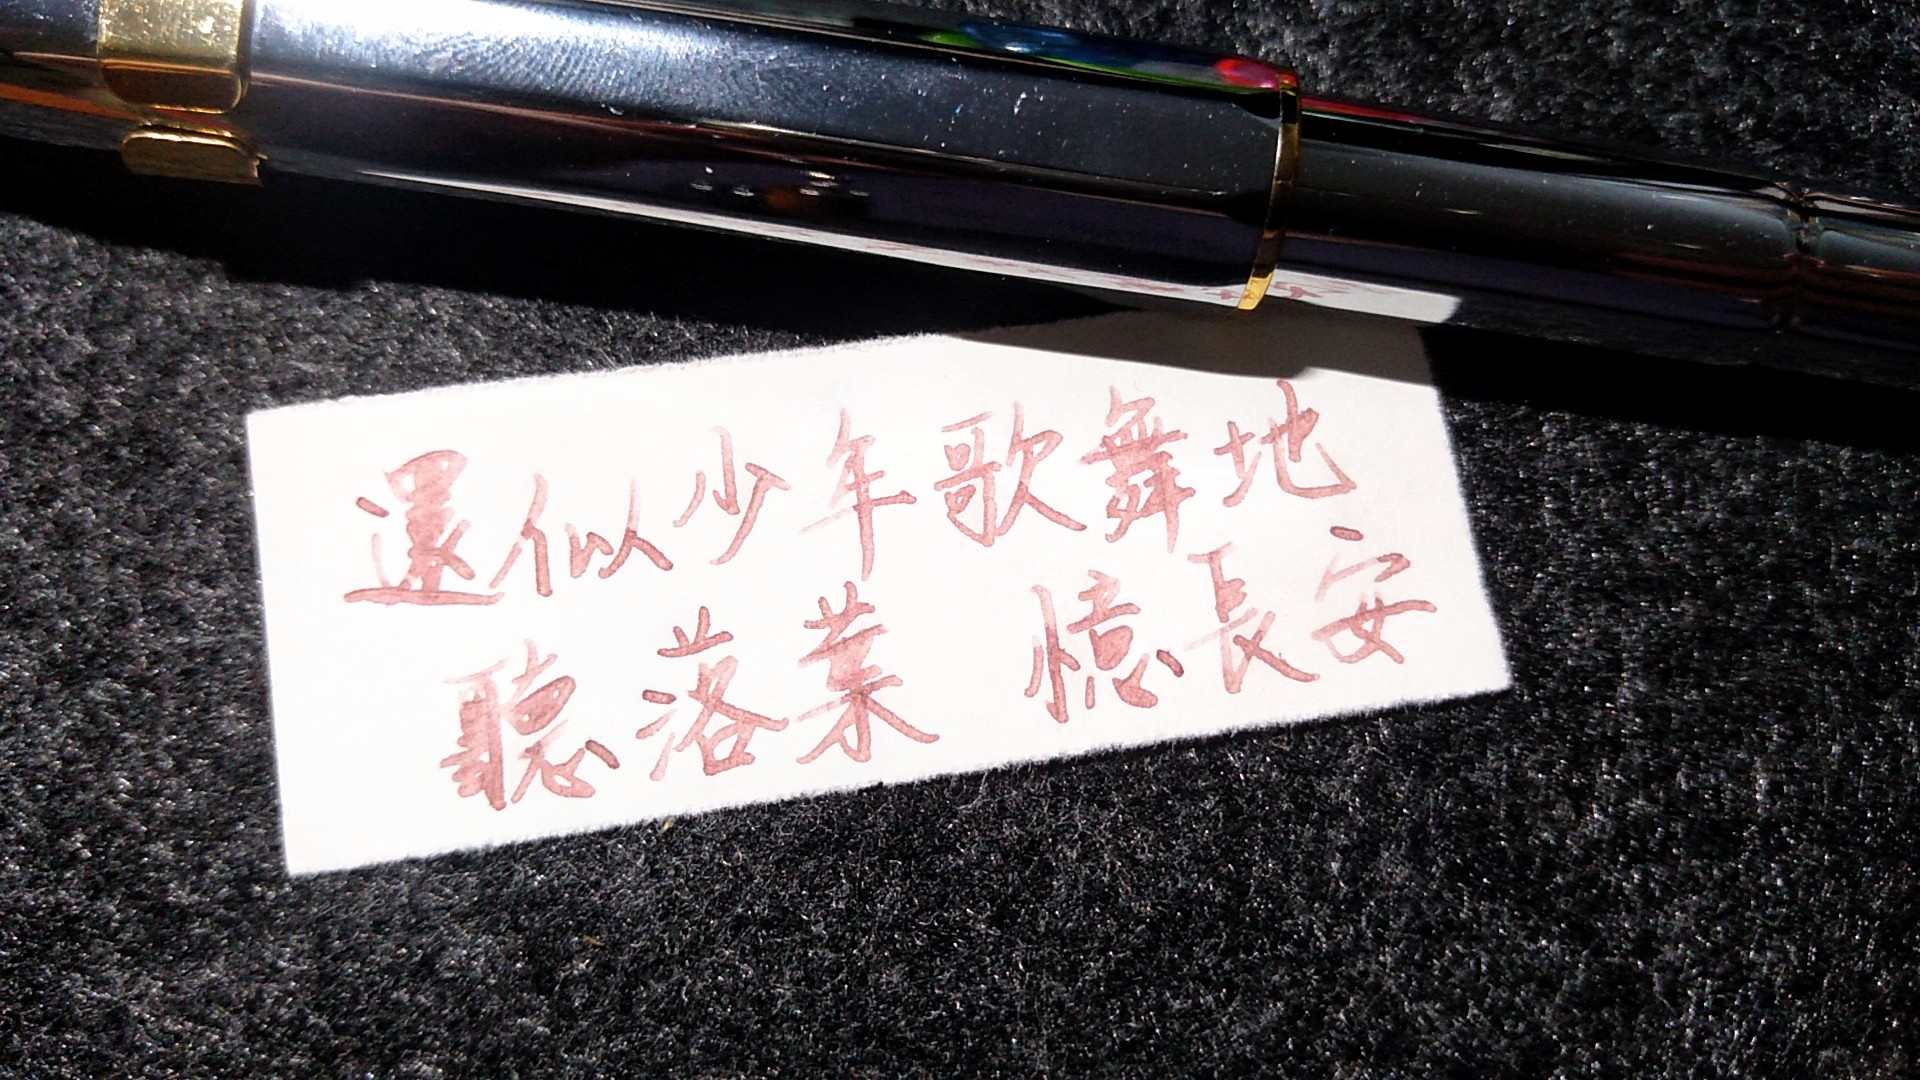 還似少年歌舞地
聽落葉 憶長安